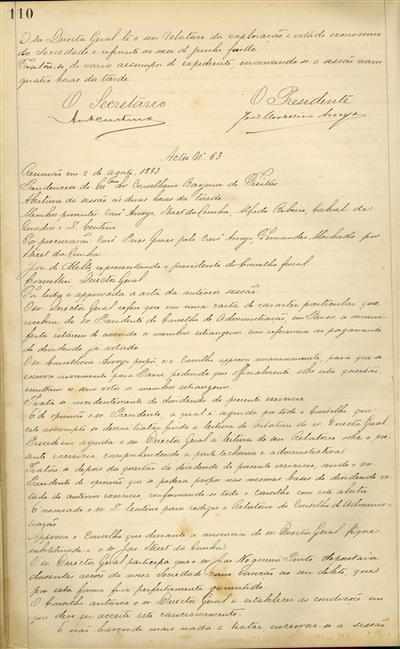 110
O Snr Director Geral lê o seu Relatorio da exploração e estado economico
da Sociedade e referente ao mez de Junho findo.
Tratou-se de varios assumptos de expediente, encerrando-se a sessão eram
quatro horas da tarde.
O Secretario O Presidente
Acta Nº 63
Reunião em 2 de agosto 1893
Presidencia do Exmo Snr Conselheiro de Freitas
Abertura da sessão ás duas horas da tarde
Membros presentes: Arroyo, Street da Cunha, Alfredo Ribeiro, Cabral de
e S. Centeno
Por procuração: Pires Gomes pelo Arroyo, Fernandes Machado por
Street da Cunha
José de Mello, representando o presidente do Conselho fiscal
Director Geral
Foi lida e approvada a acta da anterior sessão.
O Snr Director Geral refere que em uma carta de caracter particular que
recebeu do Snr Presidente do Conselho de Administração em Paris a mani-
festa estarem de accordo os membros estrangeiros com referencia ao pagamento
do dividendo já votado
O Snr Conselheiro Arroyo propõe e o Conselho approva unanimemente, para que se
escreva novamente para Paris, pedindo que officialmente sobre esta questão,
emittam os seus votos os membros estrangeiros
Trata-se incidentemente do dividendo do presente exercicio
E de opinião o snr Presidente, a qual é seguida por todo o Conselho que
este assumpto se deveria tratar finda a leitura do relatorio do snr Director Geral
Procede em seguida o snr Director Geral á leitura do seu Relatorio sobre o pre-
sente exercicio, comprehendendo a parte technica e administrativa
Tratou-se depois da questão do dividendo do presente exercicio, sendo o snr
Presidente de opinião que se podera propor nas mesmas bases do dividendo vo-
tado do anterior exercicio, conformando-se todo o Conselho com este alvitre
E nomeado o snr S. Centeno para redigir o Relatorio do Conselho d'Adminis-
tração
Approva o Conselho que durante a ausencia do snr Director Geral fique
substituindo-o o snr José Street da Cunha
O snr Director Geral participa que o snr José Nogueira Pinto depositaria
duzentas acções da nossa Sociedade como caução ao seu debito, que
por esta forma fica perfeitamente garantido
O Conselho autorisa o snr Director Geral a estabelecer as condições em
que deve ser acceite este caucionamento.
E não havendo mais nada a tratar encerrou-se a sessão